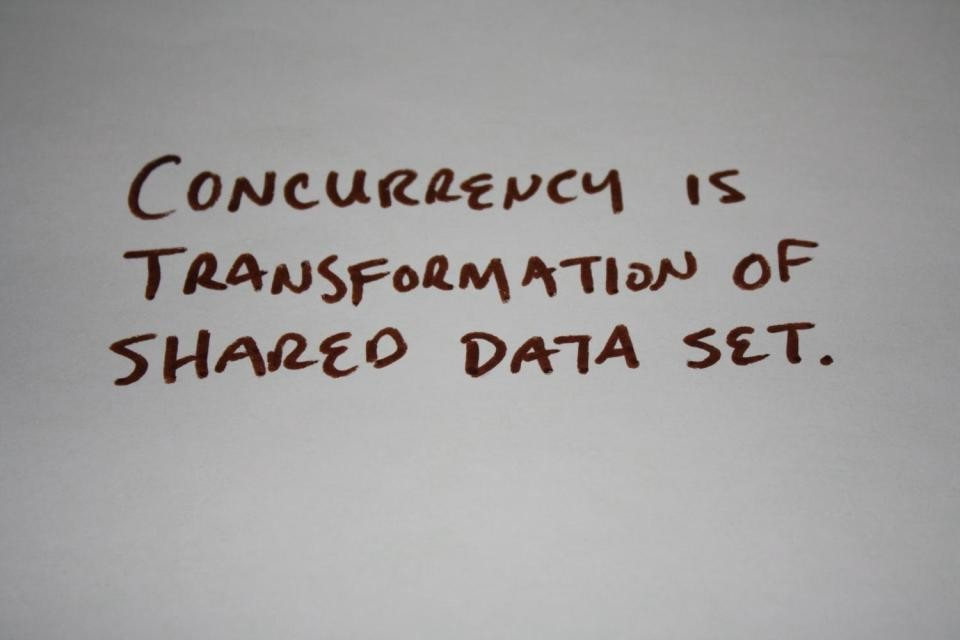 CONCURRENCY IS
TRANSFORMATION OF
SHARED DATA SET.